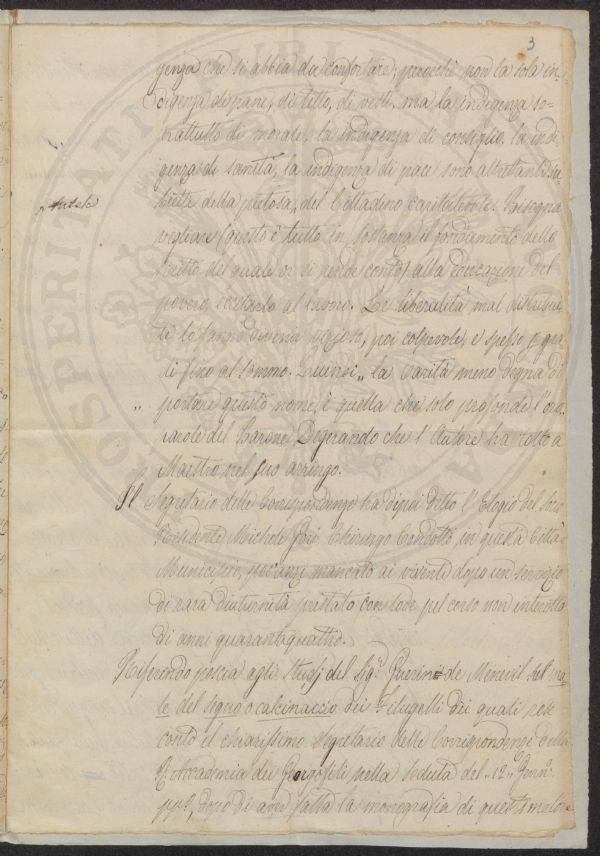 3
genza che si abbia da confortare; perocchè non la sola in-
digenza di pane, di tetto, di vesti, ma la indigenza so-
prattutto di morale, la indigenza di consiglio, la indi-
genza di sanità, la indigenza di pace sono altrettanti su-
bietti della pietosa del Cittadino caritatevole. Bisogna
vegliare (questo è tutto in sostanza il fondamento dello
scritto del quale or si rende conto) alla educazione del
povero, eccitarlo al lavoro. Le liberalità mal distribui-
te lo fanno divenir ozioso, poi colpevole, e spesso
di fino al sommo. Quindi „ la Carità meno degna di
„ portare questo nome, è quella che solo profonde l'oro,
parole del Barone Degerando che l'Autore ha tolto a
Maestro nel suo arringo.
Il Segretario delle Corrispondenze ha dipoi detto l'Elogio del Socio
Residente Michele Chirurgo Condotto in questa Città
Municipio, poc'anzi mancato ai viventi dopo un servizio
di rara diuturnità prestato con lode pel corso non interrotto
di anni quarantaquattro.
Riferendo poscia agli studj del Sig.r Guerin de Menevil sul ma-
le del segno o calcinaccio dei Filugelli dei quali rese
conto il chiarissimo Segretario delle Corrispondenze della
R. Accademia dei Georgofili nella seduta del „12„ Genn.o
pp.o, dopo di aver fatta la monografia di questo malore